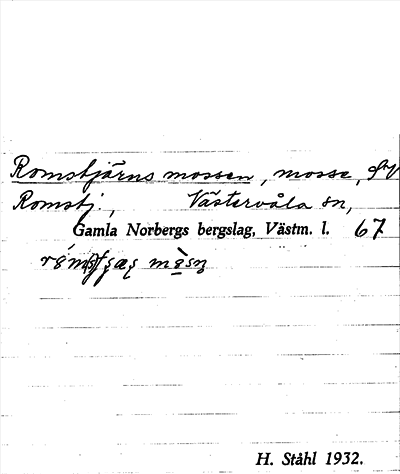 Romstjärns mossen, mosse, SV
Romstj., Västervåla sn,
Gamla Norbergs bergslag, Västm. l. 67
H. Ståhl 1932.